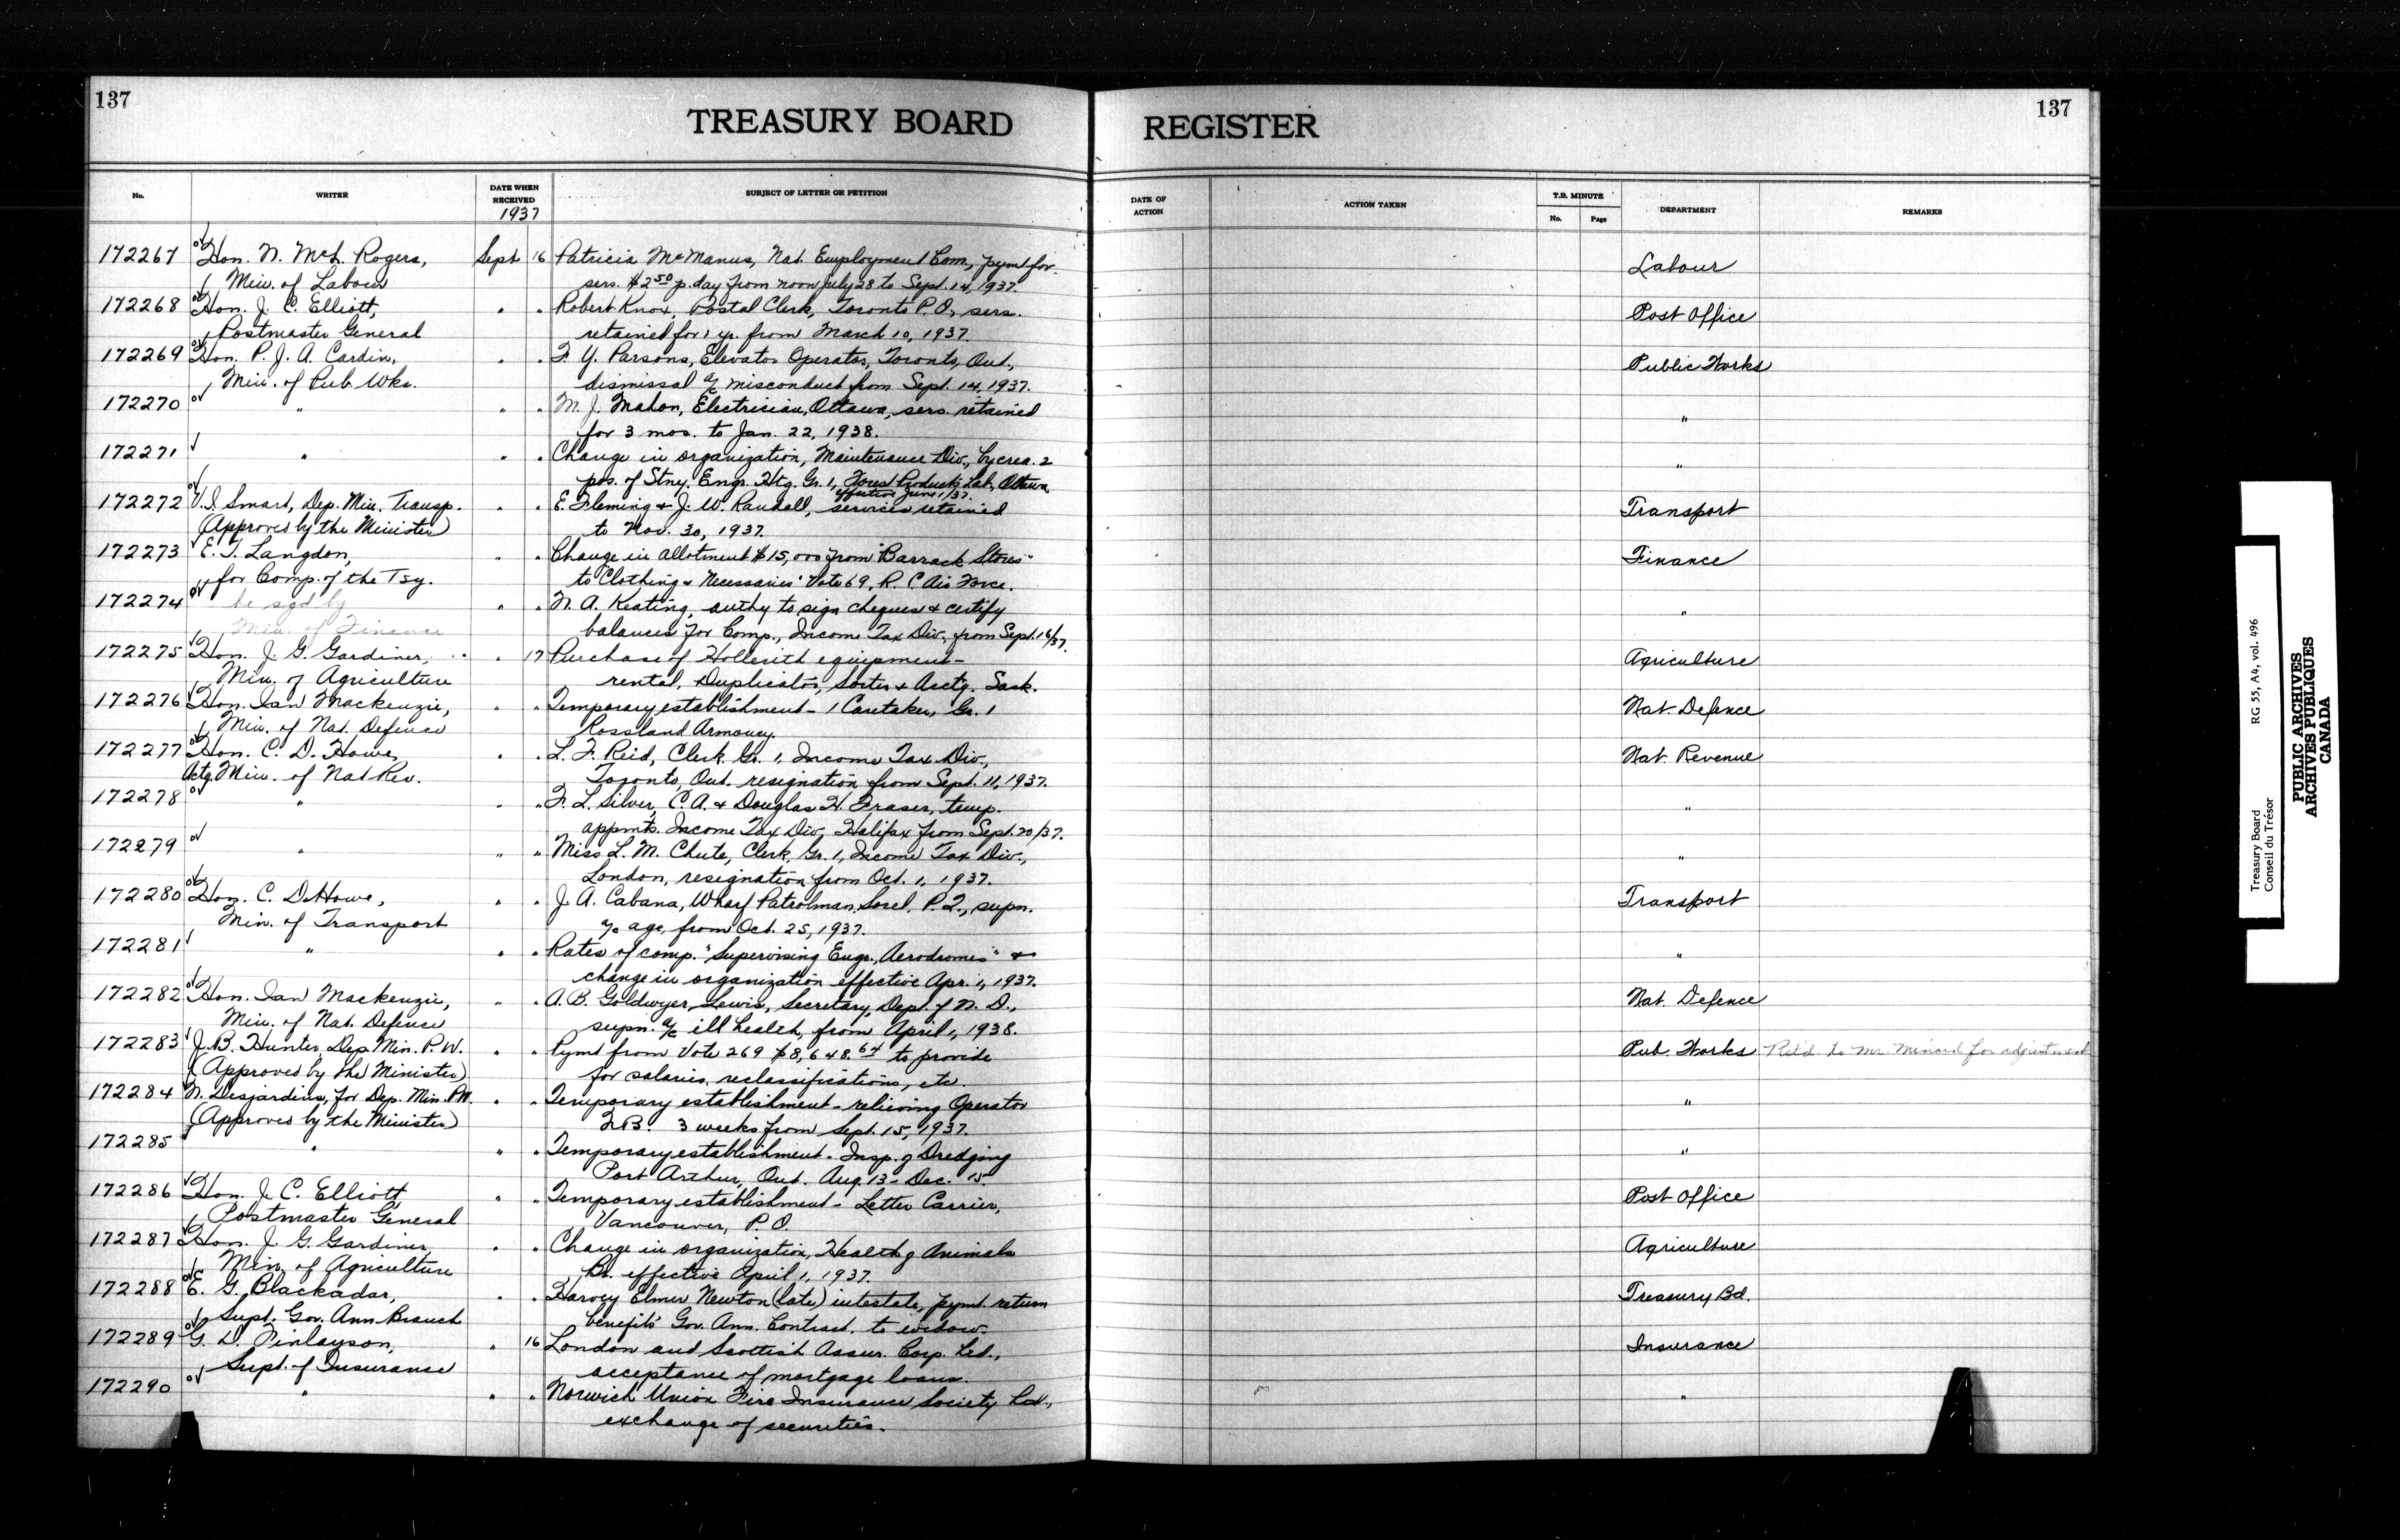 137
TREASURY BOARD REGISTER
137
No. WRITER DATE WHEN RECEIVED SUBJECT OF LETTER OR PETITION DATE OF ACTION ACTION TAKEN T.B. MINUTE No. Page DEPARTMENT REMARKS
1937
172267 Hon. N. McL. Rogers, Sept 16 Patricia McManus, Nat. Employment Com., pymt for Labour
Min. of Labour sers. $2.50 p. day from noon July 28 to Sept. 14, 1937.
172268 Hon. J. C. Elliott, " " Robert Knox, Postal Clerk, Toronto P.O., sers. Post Office
Postmaster General retained for 1 yr. from March 10, 1937.
172269 Hon. P. J. A. Cardin, " " F. Y. Parsons, Elevator Operator, Toronto, Ont., Public Works
Min. of Pub. Wks. dismissal a/c misconduct from Sept. 14, 1937.
172270 " " " M. J. Mahon, Electrician, Ottawa, sers. retained "
for 3 mos. to Jan. 22, 1938.
172271 " " " Change in organization, Maintenance Div., by crea. 2 "
pos. of Stny. Engr. Htg. Gr. 1, Forest Products Lab., Ottawa,
effective June 1/37.
172272 V. I. Smart, Dep. Min. Transp. " " E. Fleming & J. W. Randall, services retained Transport
(Approved by the Minister) to Nov. 30, 1937.
172273 E. T. Langdon, " " Change in allotment $15,000 from "Barrack Stores" Finance
for Comp. of the Tsy. to "Clothing & Necessaries" Vote 69, R. C. Air Force.
172274 be sgd by " " N. A. Keating, authy to sign cheques & certify "
Min. of Finance balances for Comp., Income Tax Div., from Sept. 16/37.
172275 Hon. J. G. Gardiner, " 17 Purchase of Hollerith equipment - Agriculture
Min. of Agriculture rental, Duplicator, Sorter & Acctg. Sask.
172276 Hon. Ian Mackenzie, " " Temporary establishment - 1 Caretaker, Gr. 1 Nat. Defence
Min. of Nat. Defence Rossland Armoury.
172277 Hon. C. D. Howe, " " L. F. Reid, Clerk Gr. 1, Income Tax Div., Nat. Revenue
Actg. Min. of Nat Rev. Toronto, Ont. resignation from Sept. 11, 1937.
172278 " " " F. L. Silver, C.A. & Douglas H. Fraser, temp. "
appmts. Income Tax Div., Halifax from Sept. 20/37.
172279 " " " Miss L. M. Chute, Clerk, Gr. 1, Income Tax Div., "
London, resignation from Oct. 1, 1937.
172280 Hon. C. D. Howe, " " J. A. Cabana, Wharf Patrolman, Sorel, P.Q., supn. Transport
Min. of Transport a/c age, from Oct. 25, 1937.
172281 " " " Rates of comp. "Supervising Engr., Aerodromes" & "
change in organization effective Apr. 1, 1937.
172282 Hon. Ian Mackenzie, " " A. B. Goldwyer Lewis, Secretary, Dept. of N. D., Nat. Defence
Min. of Nat. Defence supn. a/c ill health, from April 1, 1938.
172283 J. B. Hunter, Dep. Min. P. W. " " Pymt from Vote 269 $8,648.64 to provide Pub. Works Ret'd to Mr. for adjustment
(Approved by the Minister) for salaries, reclassifications, etc.
172284 N. Desjardins, for Dep. Min. P.W. " " Temporary establishment - relieving Operator "
(Approved by the Minister) 3 weeks from Sept. 15, 1937.
172285 " " " Temporary establishment - Insp. of Dredging "
Port Arthur, Ont. Aug. 13 - Dec. 15
172286 Hon. J. C. Elliott, " " Temporary establishment - Letter Carrier, Post Office
Postmaster General Vancouver, P. O.
172287 Hon. J. G. Gardiner, " " Change in organization, Health of Animals Agriculture
Min. of Agriculture Br. effective April 1, 1937.
172288 E. G. Blackadar, " " Harvey Elmer Newton (late) intestate, pymt. return Treasury Bd.
Supt. Gov. Ann Branch benefits Gov. Ann. Contract. to widow.
172289 G. D. Finlayson, " 16 London and Scottish Assur. Corp. Ltd., Insurance
Supt. of Insurance acceptance of mortgage loans.
172290 " " " Norwich Union Fire Insurance Society Ltd., "
exchange of securities.
Treasury Board RG 55, A4, vol. 496
Conseil du Trésor
PUBLIC ARCHIVES
ARCHIVES PUBLIQUES
CANADA